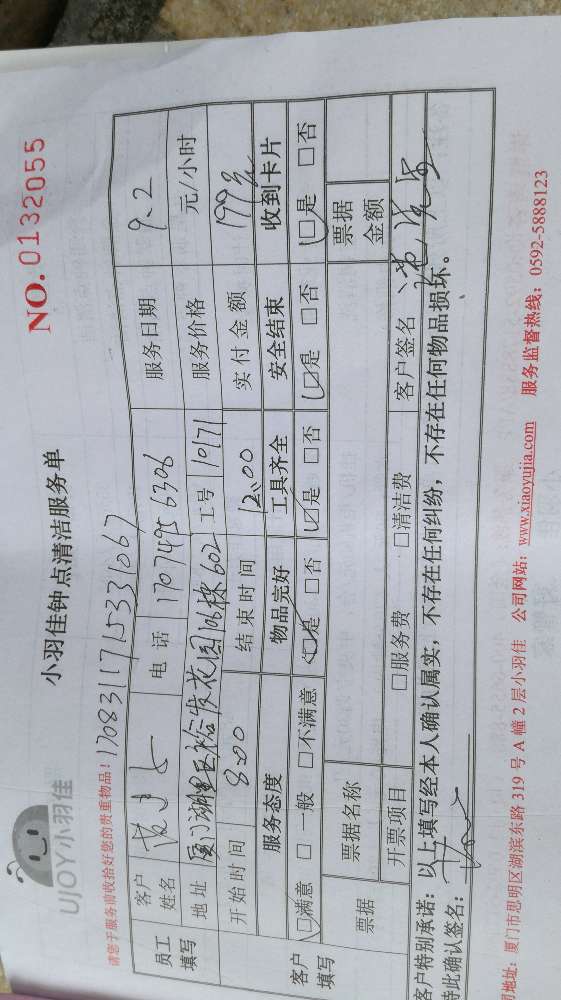 UJOY小羽佳
小羽佳钟点清洁服务单
NO.0132055
请您于服务前收拾好您的贵重物品！1708311715331067
员工填写
客户姓名 电话 服务日期 9.2
地址 厦门湖里区裕发花园 602 工号 10171 服务价格 元/小时
开始时间 8:00 结束时间 12:00 实付金额 199元
客户填写
服务态度 物品完好 工具齐全 安全结束 收到卡片
□满意 □一般 □不满意 □是 □否 □是 □否 □是 □否 □是 □否
票据 票据名称 票据金额
开票项目 □服务费 □清洁费 客户签名
客户特别承诺：以上填写经本人确认属实，不存在任何纠纷，不存在任何物品损坏。
特此确认签名：
地址：厦门市思明区湖滨东路319号A幢2层小羽佳 公司网站：www.xiaoyujia.com 服务监督热线：0592-5888123